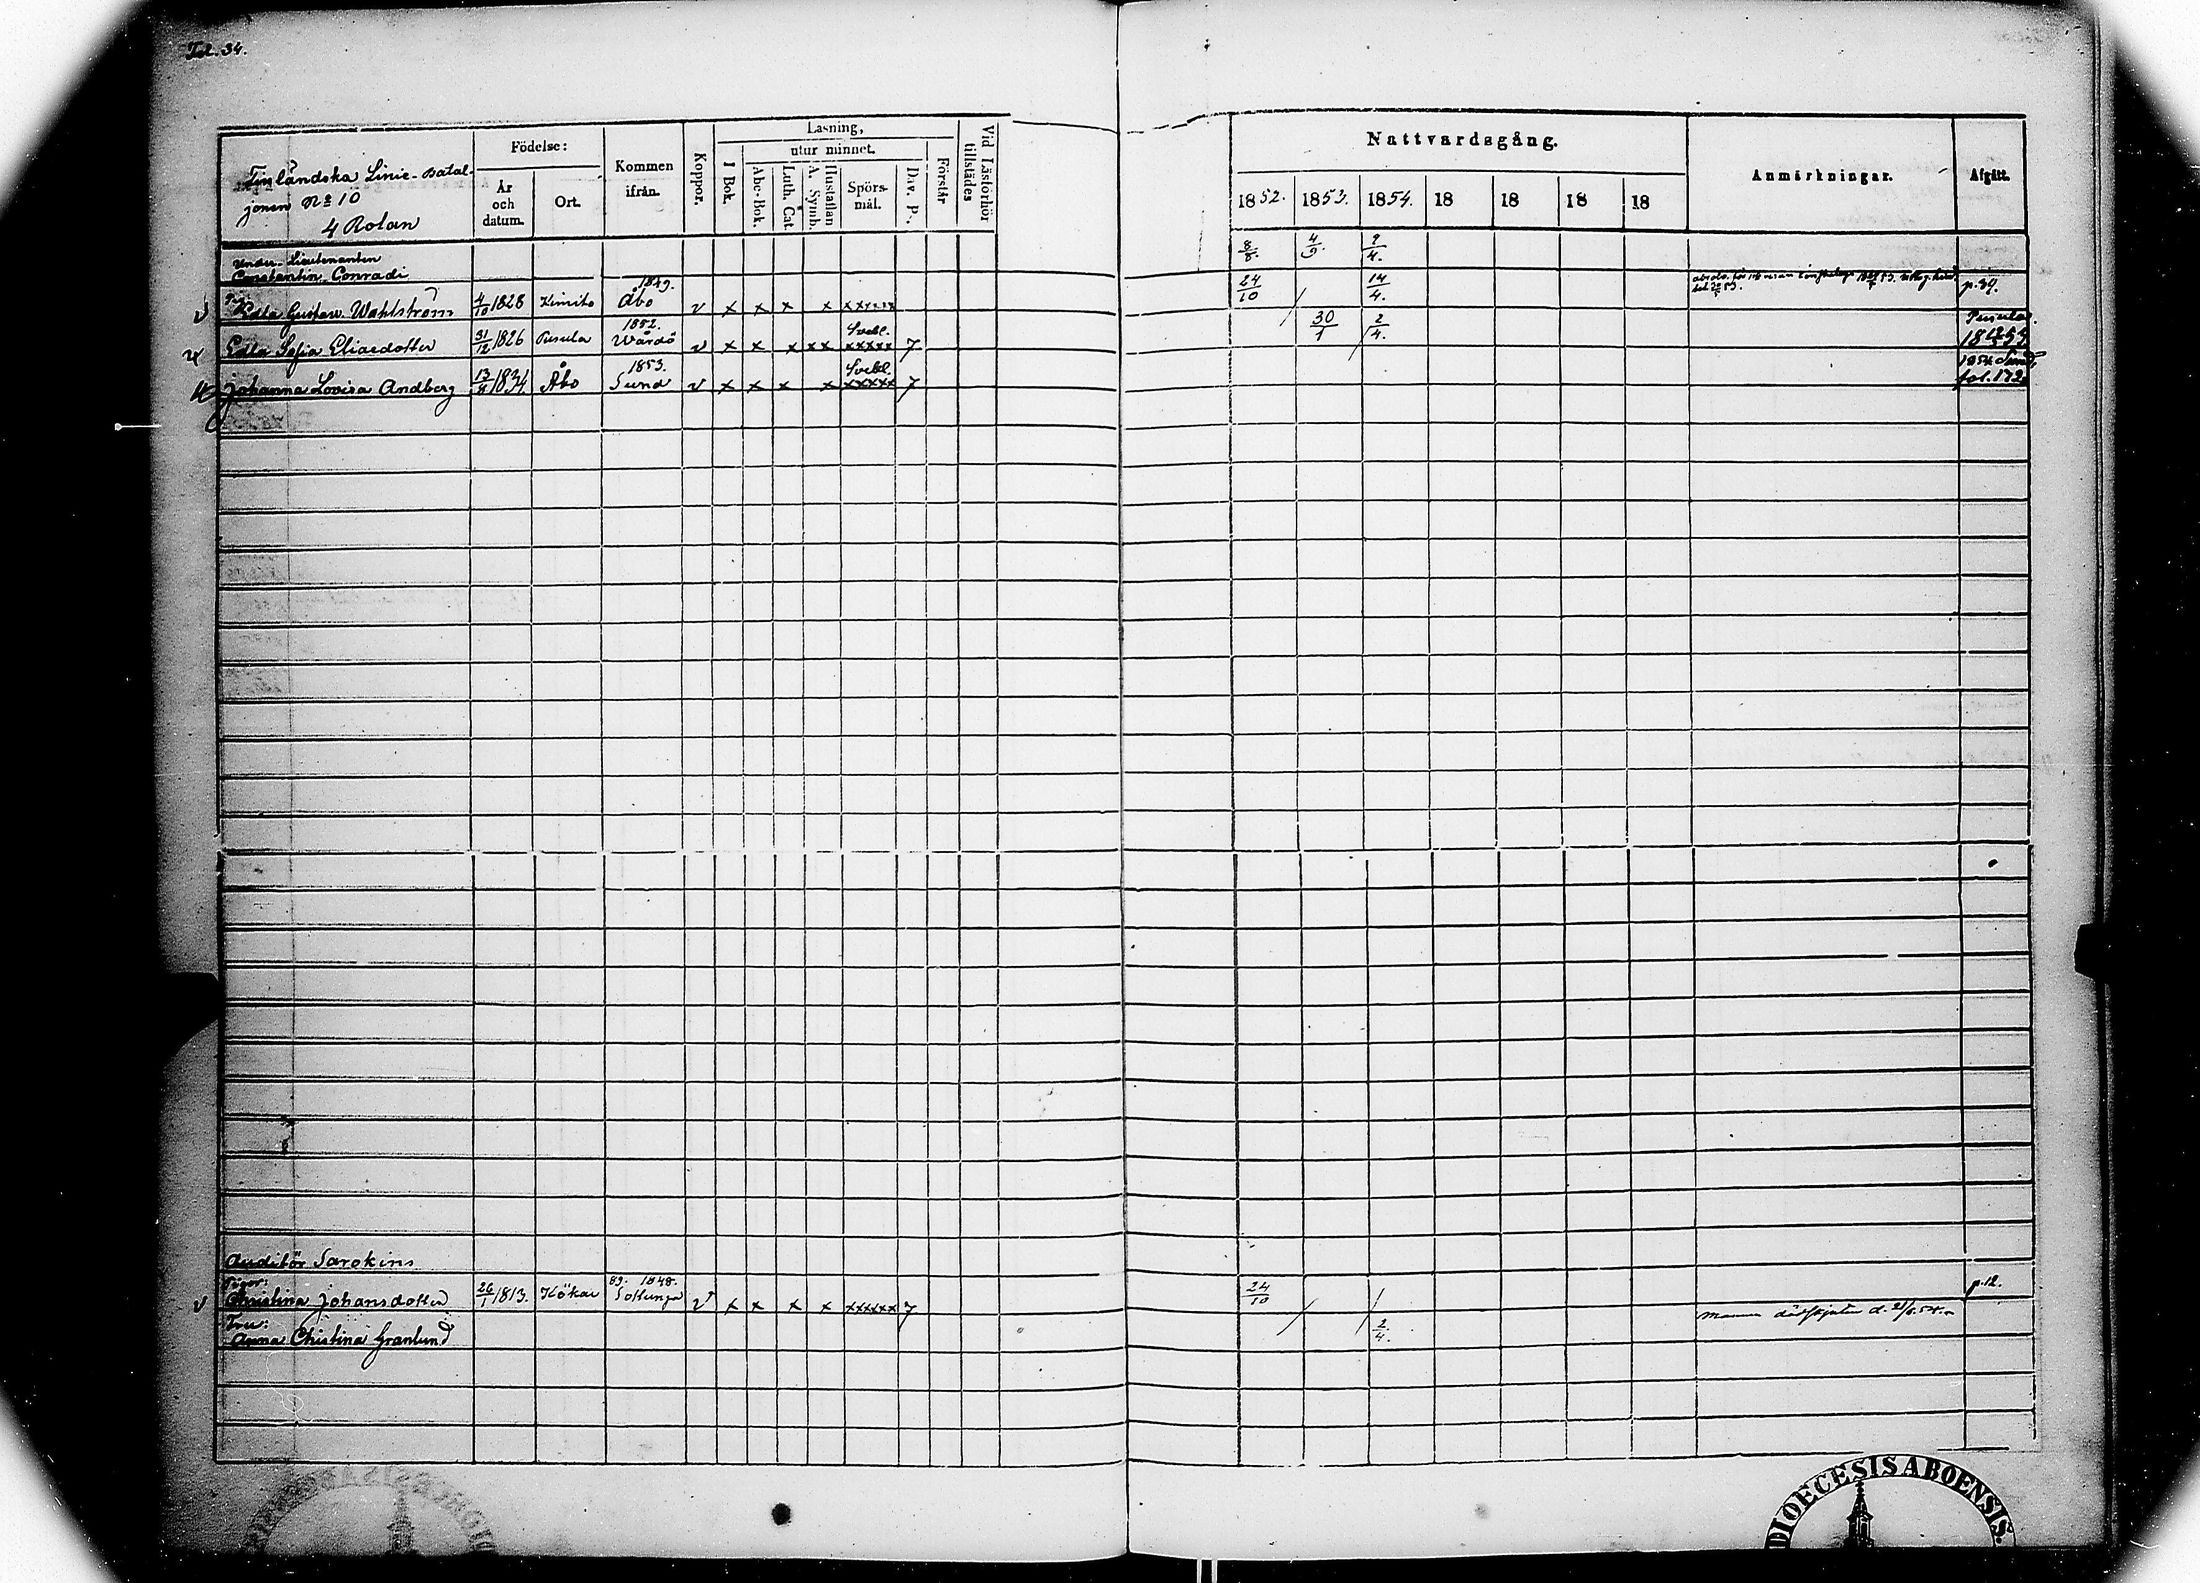 Fol. 34.
Finländska Linie-Batal-
jonen No 10
4 Rotan
Födelse:
År och datum.
Ort.
Kommen ifrån.
Koppor.
Läsning,
I Bok.
utur minnet.
Abc-Bok.
Luth. Cat.
Hustaflan A. Symb.
Spörs-mål.
Dav. P.
Förstår
Vid Läsförhör tillstädes
Nattvardsgång.
1852. 1853. 1854. 18 18 18 18
Anmärkningar.
Afgått.
Under-Lieutenanten
Constantin Conradi 8/8. 4/9. 2/4.
Gustav Wahlström 4/10 1828 Kimito 1849. Åbo v x x x x xxxxxx 24/10 / 14/4. p. 39.
Edla Sofia Eliaedotter 31/12 1826 Pusula 1852. Wårdö v x x x x x Svebel. xxxxx 7 30/1 2/4. Pusula
Johanna Lovisa Andberg 13/8 1834 Åbo 1853. Sund v x x x x Svebel. xxxxxx 7 1854 Sund fol. 172
Auditör Sarokins
Piga:
Christina Johansdotter 26/1 1813. Kökar 1848. Sottunga v x x x x xxxxxx 7 24/10 / / p. 12.
Fru:
Anna Christina Granlund / / 2/4.
DIOECESIS ABOENSIS.